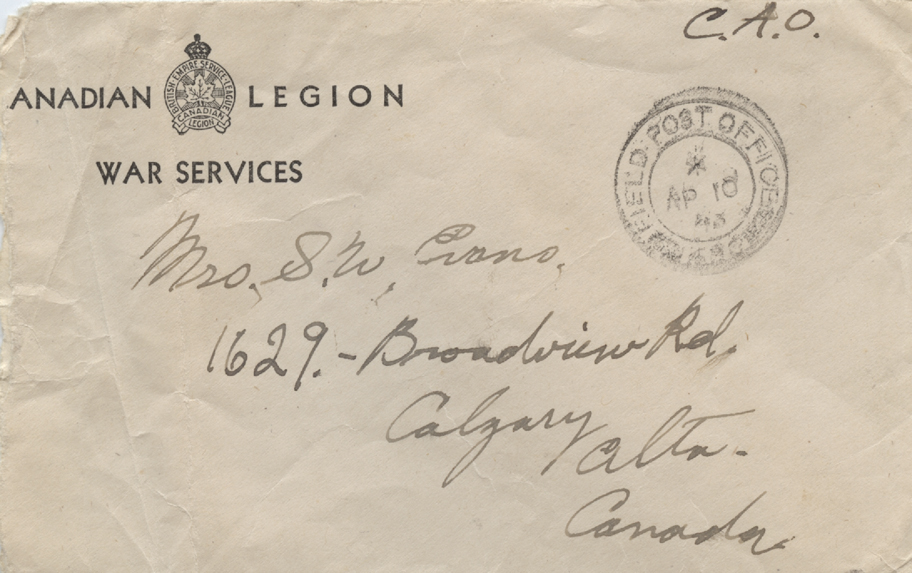 C.A.O.
ANADIAN LEGION
BRITISH EMPIRE SERVICE LEAGUE
CANADIAN
LEGION
WAR SERVICES
FIELD POST OFFICE
AP 10
43
Mrs. S. W. Evans.
1629.- Broadview Rd.
Calgary
Alta-
Canada